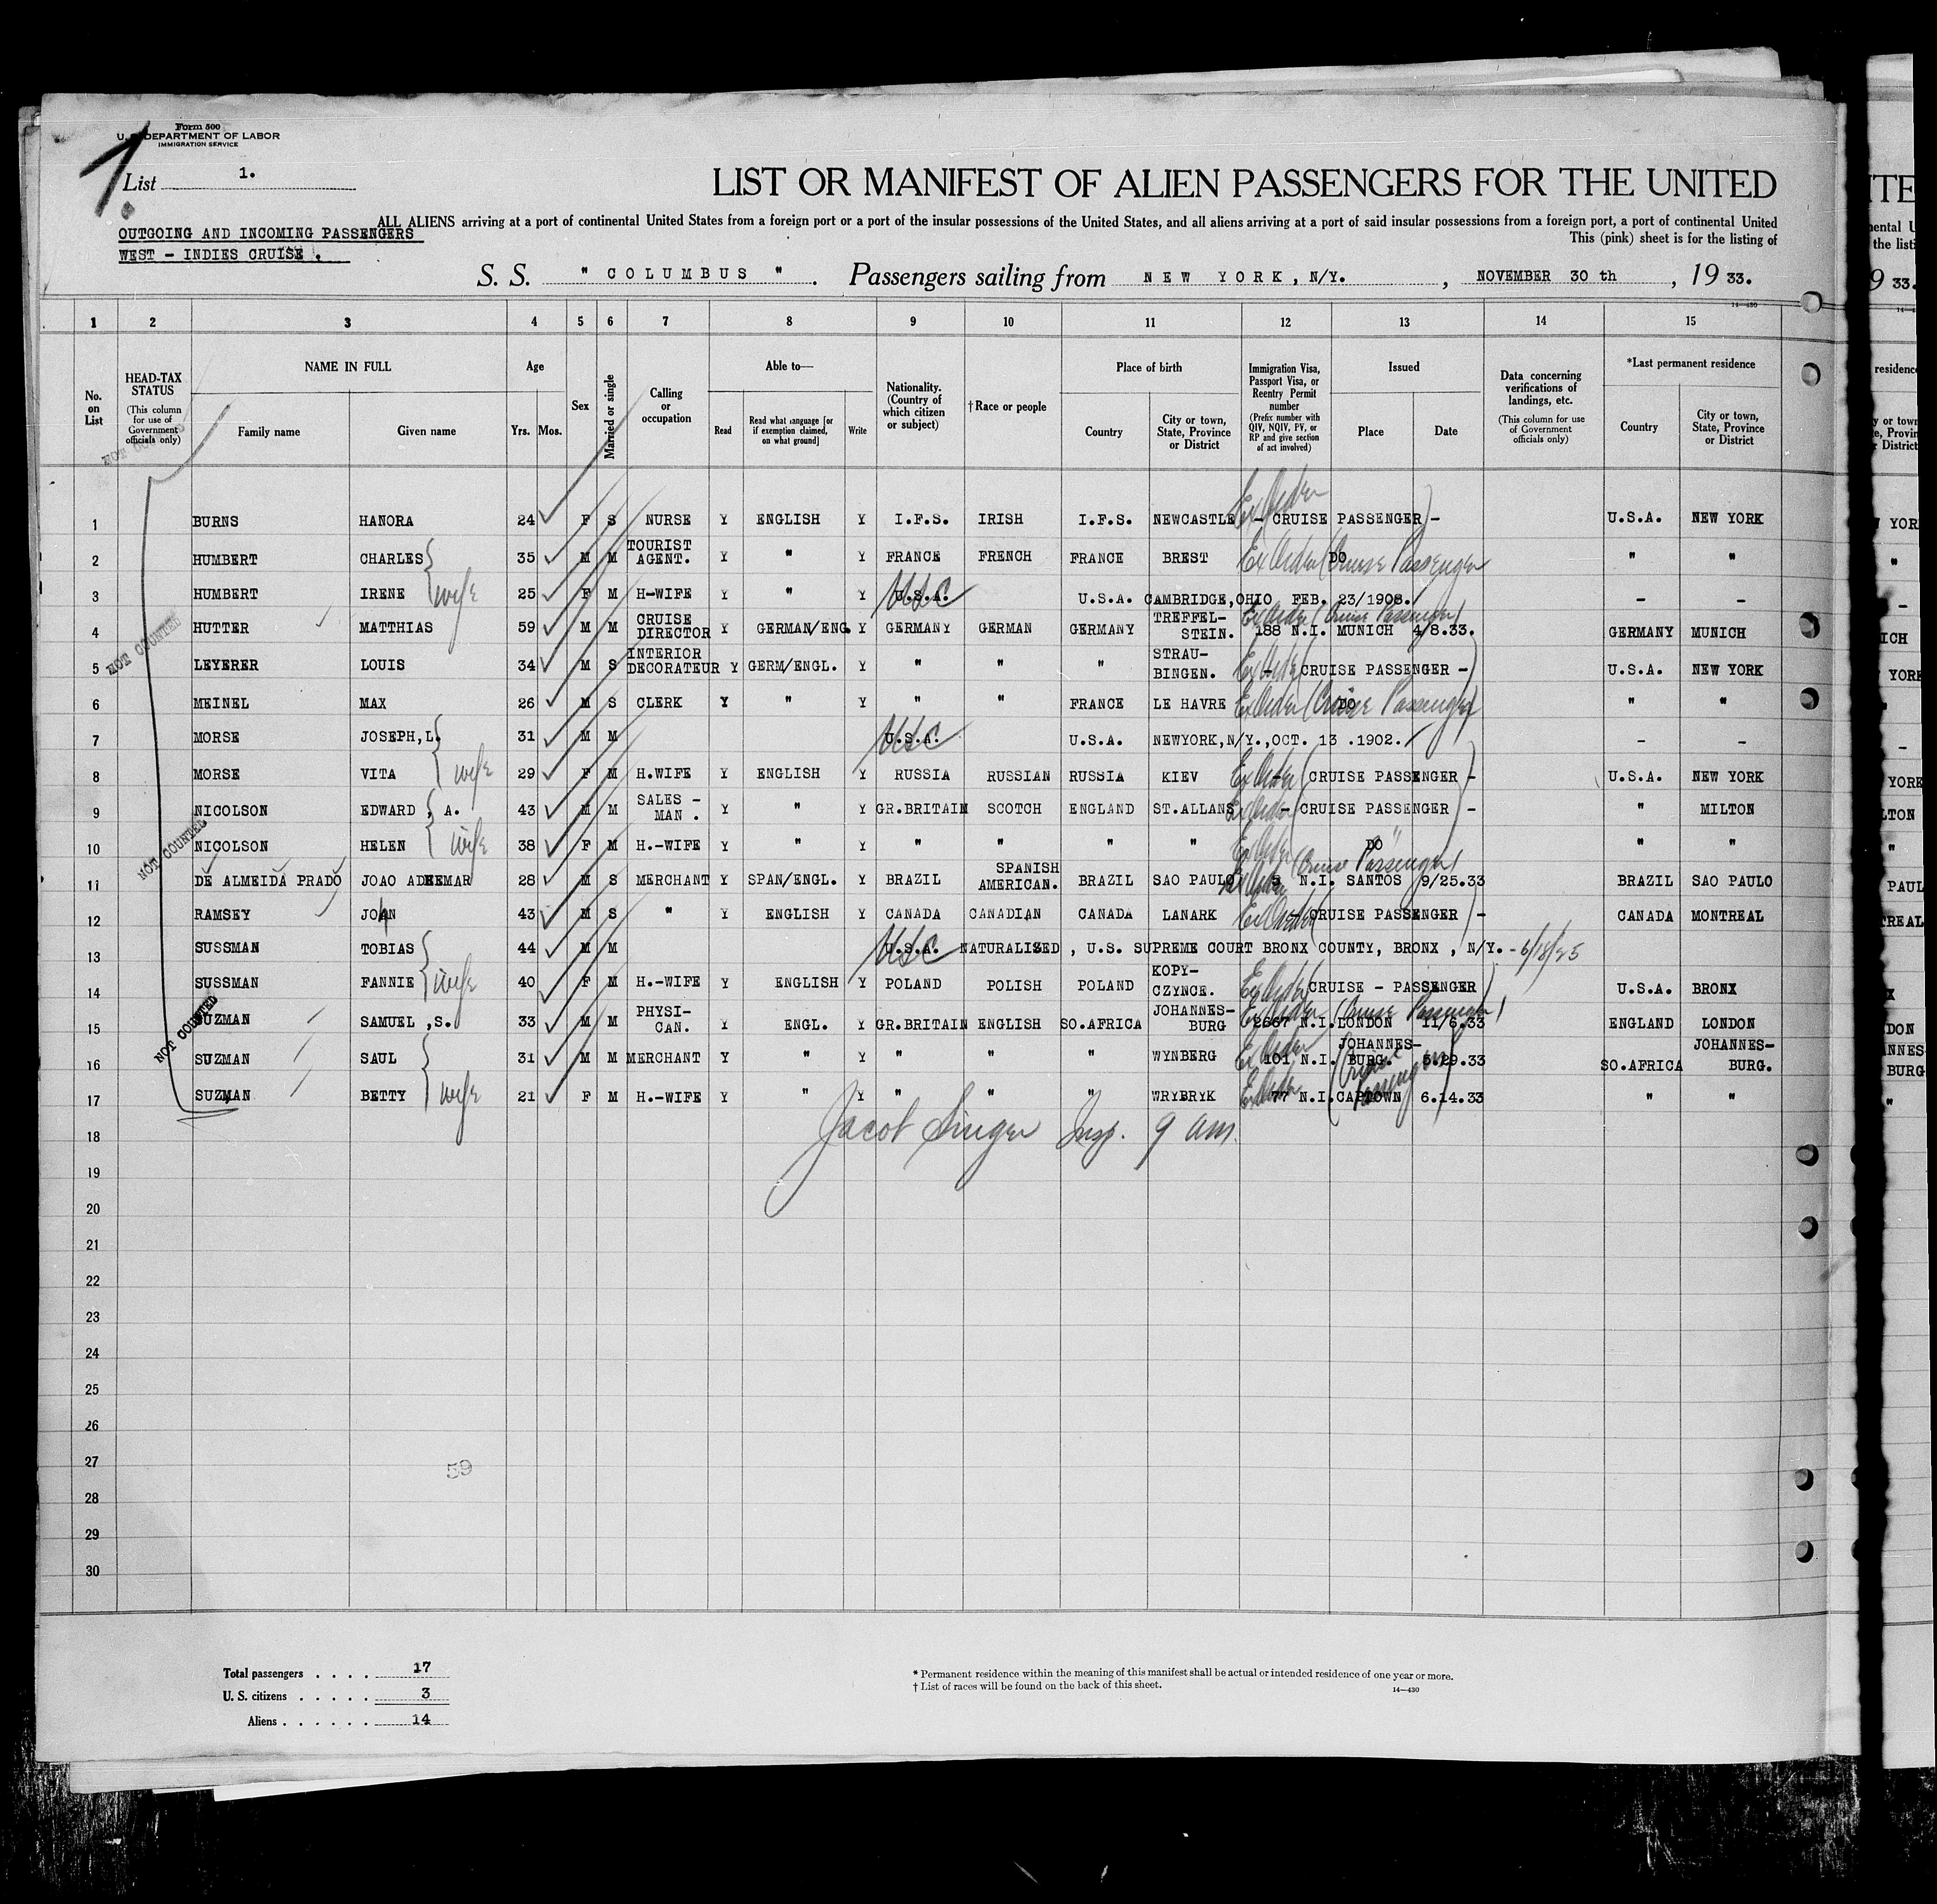 Form 500
U. S. DEPARTMENT OF LABOR
IMMIGRATION SERVICE
1
List 1.
LIST OR MANIFEST OF ALIEN PASSENGERS FOR THE UNITED
ALL ALIENS arriving at a port of continental United States from a foreign port or a port of the insular possessions of the United States, and all aliens arriving at a port of said insular possessions from a foreign port, a port of continental United
OUTGOING AND INCOMING PASSENGERS
This (pink) sheet is for the listing of
WEST - INDIES CRUISE .
S. S. " COLUMBUS " . Passengers sailing from NEW YORK, N/Y. , NOVEMBER 30 th , 19 33.
14-430
1 2 3 4 5 6 7 8 9 10 11 12 13 14 15
No. on List
HEAD-TAX STATUS (This column for use of Government officials only)
NAME IN FULL
Family name Given name
Age
Yrs. Mos.
Sex
Married or single
Calling or occupation
Able to—
Read Read what language [or if exemption claimed, on what ground] Write
Nationality. (Country of which citizen or subject)
† Race or people
Place of birth
Country City or town, State, Province or District
Immigration Visa, Passport Visa, or Reentry Permit number (Prefix number with QIV, NQIV, PV, or RP and give section of act involved)
Issued
Place Date
Data concerning verifications of landings, etc. (This column for use of Government officials only)
*Last permanent residence
Country City or town, State, Province or District
NOT COUNTED
1 BURNS HANORA 24 F S NURSE Y ENGLISH Y I.F.S. IRISH I.F.S. NEWCASTLE Ex Order - CRUISE PASSENGER - U.S.A. NEW YORK
2 HUMBERT CHARLES 35 M M TOURIST AGENT. Y " Y FRANCE FRENCH FRANCE BREST Ex Order DO (Cruise Passenger " "
3 HUMBERT IRENE wife 25 F M H-WIFE Y " Y U.S.A. USC U.S.A. CAMBRIDGE, OHIO FEB. 23/1908. - -
4 HUTTER MATTHIAS 59 M M CRUISE DIRECTOR Y GERMAN/ENG. Y GERMANY GERMAN GERMANY TREFFEL-STEIN. Ex Order (Cruise Passenger) 188 N.I. MUNICH 4/8.33. GERMANY MUNICH
NOT COUNTED
5 LEYERER LOUIS 34 M S INTERIOR DECORATEUR Y GERM/ENGL. Y " " " STRAU-BINGEN. Ex Order (CRUISE PASSENGER -) U.S.A. NEW YORK
6 MEINEL MAX 26 M S CLERK Y " Y " " FRANCE LE HAVRE Ex Order DO (Cruise Passenger) " "
7 MORSE JOSEPH,L. 31 M M U.S.A. USC U.S.A. NEWYORK, N/Y.,OCT. 13 .1902. - -
8 MORSE VITA wife 29 F M H.WIFE Y ENGLISH Y RUSSIA RUSSIAN RUSSIA KIEV Ex Order (CRUISE PASSENGER - U.S.A. NEW YORK
9 NICOLSON EDWARD , A. 43 M M SALES - MAN . Y " Y GR.BRITAIN SCOTCH ENGLAND ST.ALLANS Ex Order - CRUISE PASSENGER - " MILTON
NOT COUNTED
10 NICOLSON HELEN wife 38 F M H.-WIFE Y " Y " " " " Ex Order DO " " "
11 DE ALMEIDA PRADO JOAO ADHEMAR 28 M S MERCHANT Y SPAN/ENGL. Y BRAZIL SPANISH AMERICAN. BRAZIL SAO PAULO Ex Order (Cruise Passenger) 5 N.I. SANTOS 9/25.33 BRAZIL SAO PAULO
12 RAMSEY 43 M S " Y ENGLISH Y CANADA CANADIAN CANADA LANARK Ex Order (CRUISE PASSENGER) - CANADA MONTREAL
13 SUSSMAN TOBIAS 44 M M U.S.A. USC NATURALIZED , U.S. SUPREME COURT BRONX COUNTY, BRONX , N/Y. - 6/18/25
14 SUSSMAN FANNIE wife 40 F M H.-WIFE Y ENGLISH Y POLAND POLISH POLAND KOPY-CZYNCE. Ex Order (CRUISE - PASSENGER) U.S.A. BRONX
NOT COUNTED
15 SUZMAN SAMUEL ,S. 33 M M PHYSI-CAN. Y ENGL. Y GR.BRITAIN ENGLISH SO.AFRICA JOHANNES-BURG Ex Order (Cruise Passenger) 2667 N.I. LONDON 11/6.33 ENGLAND LONDON
16 SUZMAN SAUL 31 M M MERCHANT Y " Y " " " WYNBERG Ex Order 101 N.I. JOHANNES-BURG. 5.29.33 (Cruise Passenger) SO.AFRICA JOHANNES-BURG.
17 SUZMAN BETTY wife 21 F M H.-WIFE Y " Y " " " WRYBRYK Ex Order 77 N.I. CAPTOWN 6.14.33 " "
18 Jacob Singer Insp. 9 am.
19
20
21
22
23
24
25
26
27
59
28
29
30
Total passengers . . . . 17
U. S. citizens . . . . . 3
Aliens . . . . . . 14
* Permanent residence within the meaning of this manifest shall be actual or intended residence of one year or more.
† List of races will be found on the back of this sheet.
14—430